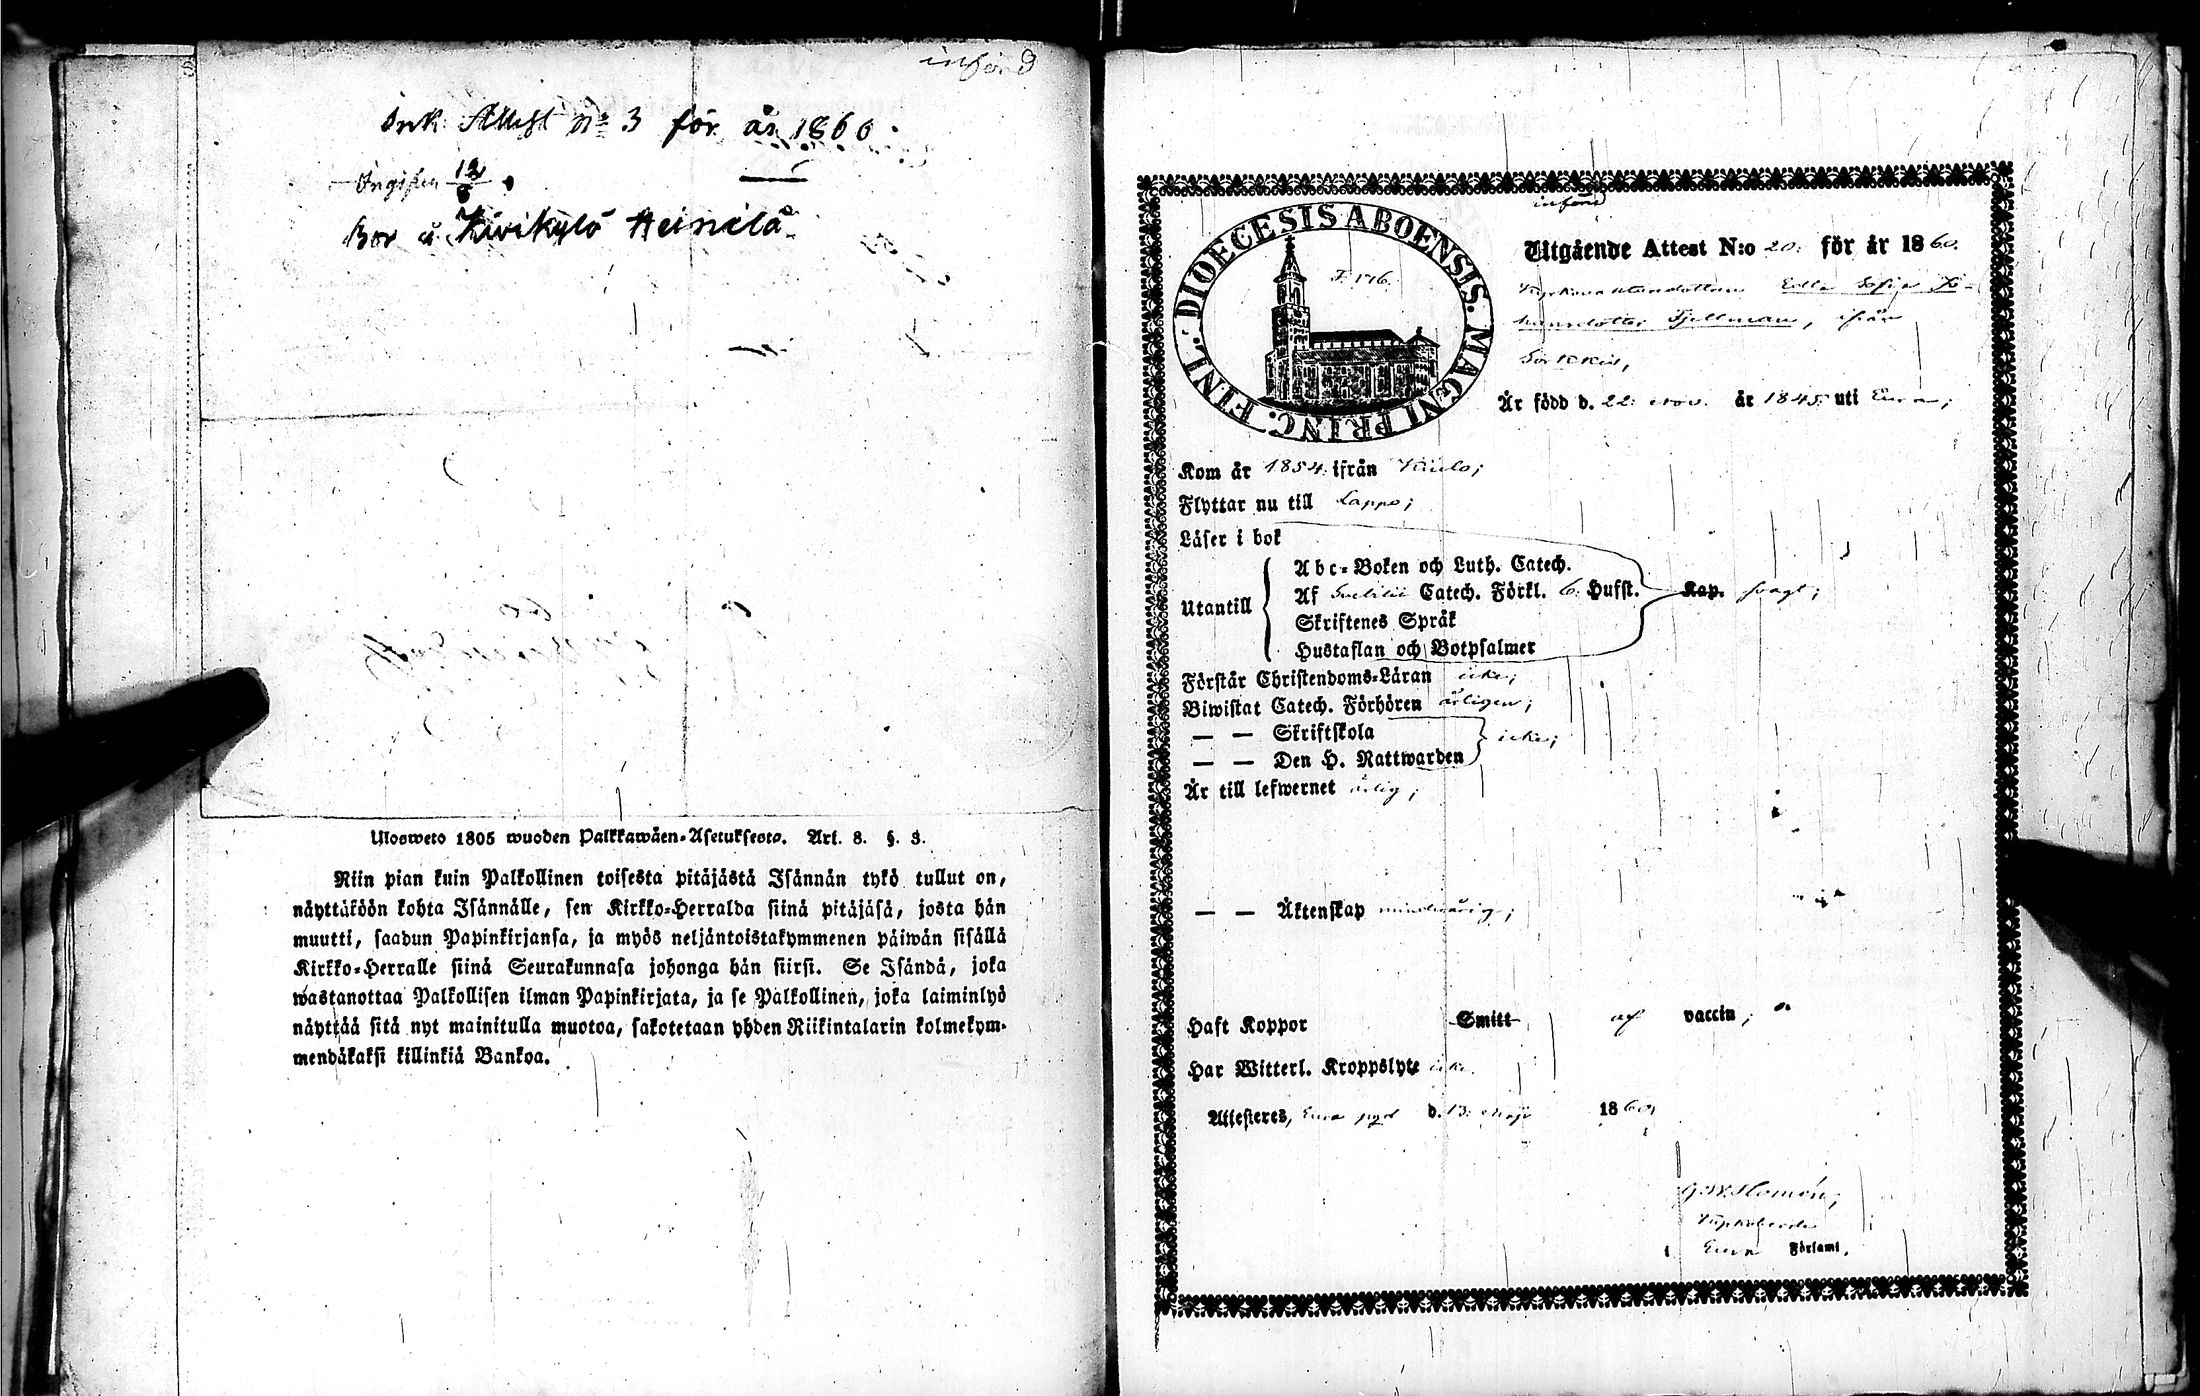 införd
Ink. Attest No 3 för år 1860.
Ingifven 12/8
Bor å Kivikylä Heinilä
Ulosweto 1805 wuoden Palkkawäen-Asetuksesta. Art. 8. §. 3.
Niin pian kuin Palkollinen toisesta pitäjästä Isännän tykö tullut on,
näyttäköön kohta Isännälle, sen Kirkko-Herralda siinä pitäjäsä, josta hän
muutti, saadun Papinkirjansa, ja myös neljäntoistakymmenen päiwän sisällä
Kirkko-Herralle siinä Seurakunnasa johonga hän siirsi. Se Isändä, joka
wastanottaa Palkollisen ilman Papinkirjata, ja se Palkollinen, joka laiminlyö
näyttää sitä nyt mainitulla muotoa, sakotetaan yhden Riikintalarin kolmekym-
mendäkaksi killinkiä Bankoa.
införd
DIOECESIS ABOENSIS. MAGNI PRINC. FINL.:
F. 176.
Utgående Attest N:o 20. för år 1860.
Edla Sofia Jo-
hansdotter Fjellman, ifrån
Sorkkis,
Är född d. 22. nov. år 1845. uti Eura;
Kom år 1854. ifrån Kiulo;
Flyttar nu till Lappo;
Läser i bok
Utantill
Abc-Boken och Luth. Catech.
Af Svebilii Catech. Förkl. 6. Hufst.
Skriftenes Språk
Hustaflan och Botpsalmer
Kap. svagt;
Förstår Christendoms-Läran icke;
Biwistat Catech. Förhören årligen;
— — Skriftskola
— — Den H. Nattwarden
icke;
Är till lefwernet ärlig;
— — Äktenskap minderårig;
Haft Koppor Smitt af vaccin;
Har Witterl. Kroppslyte icke.
Attesteres, Eura pgd d. 13. Maji 1860,
Kyrkoherde
i Eura Församl.